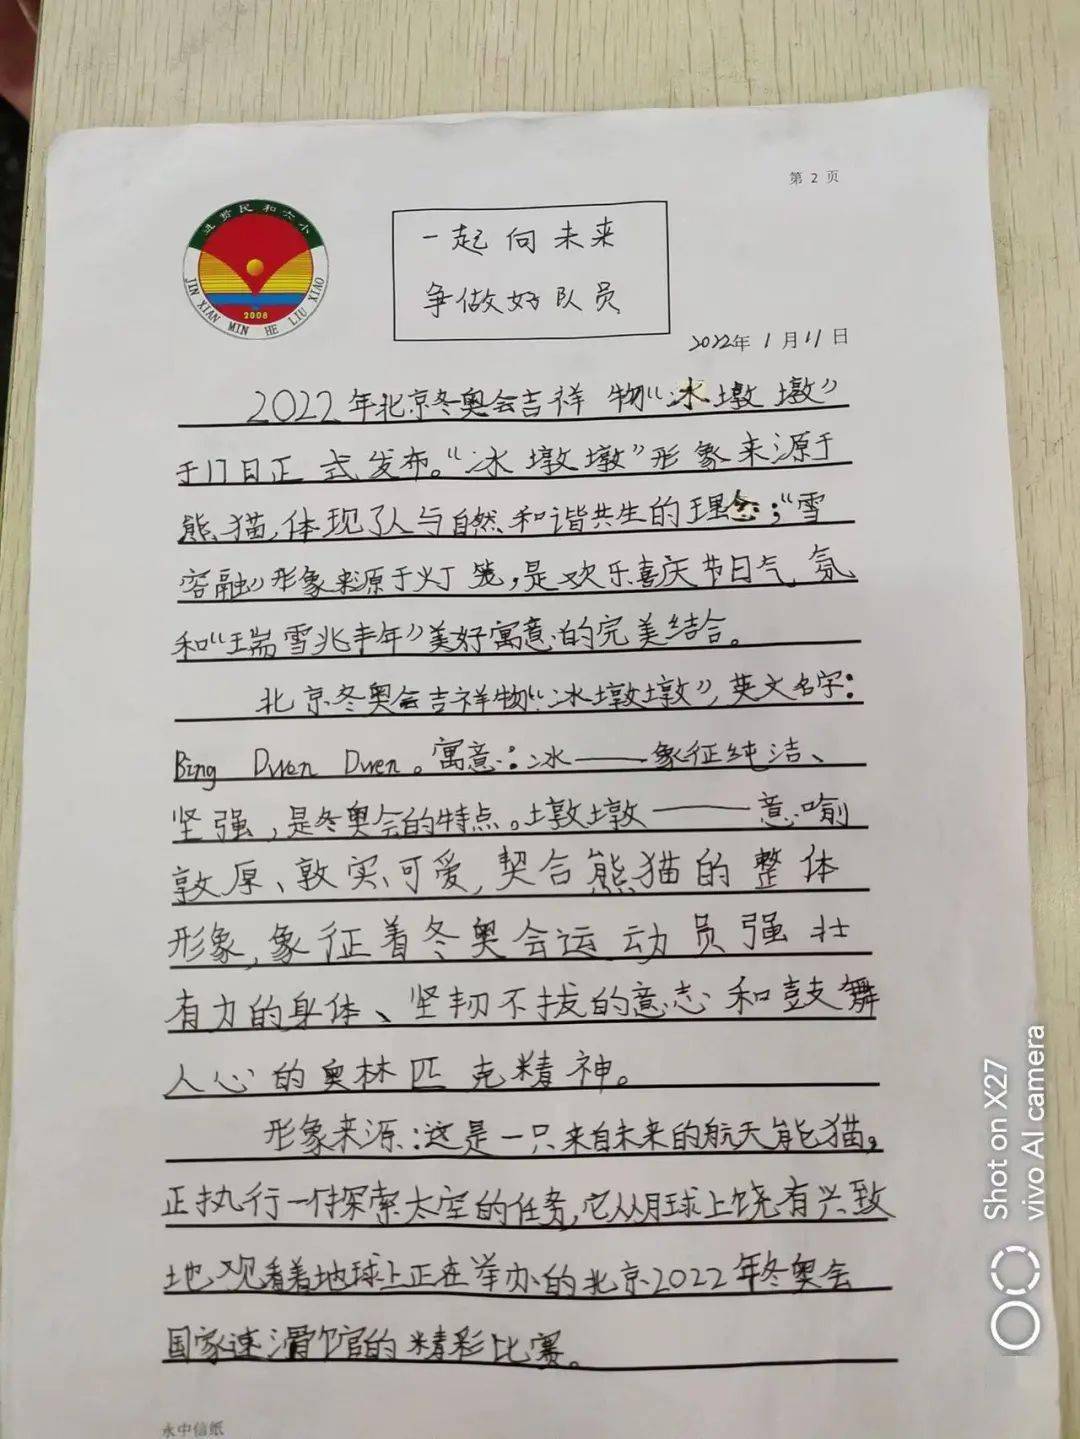 第 2 页
进贤民和六小
JIN XIAN MIN HE LIU XIAO
2008
一起向未来
争做好队员
2022年 1月11日
2022年北京冬奥会吉祥物“冰墩墩”
于17日正式发布。“冰墩墩”形象来源于
熊猫,体现了人与自然和谐共生的理念;“雪
容融”形象来源于灯笼,是欢乐喜庆节日气氛
和“瑞雪兆丰年”美好寓意的完美结合。
北京冬奥会吉祥物“冰墩墩”,英文名字:
Bing Dwen Dwen。寓意:冰——象征纯洁、
坚强,是冬奥会的特点。墩墩——意喻
敦厚、敦实、可爱,契合熊猫的整体
形象,象征着冬奥会运动员强壮
有力的身体、坚韧不拔的意志和鼓舞
人心的奥林匹克精神。
形象来源:这是一只来自未来的航天熊猫,
正执行一付探索太空的任务,它从月球上饶有兴致
地观看着地球上正在举办的北京2022年冬奥会
国家速滑馆的精彩比赛。
永中信纸
Shot on X27
vivo AI camera